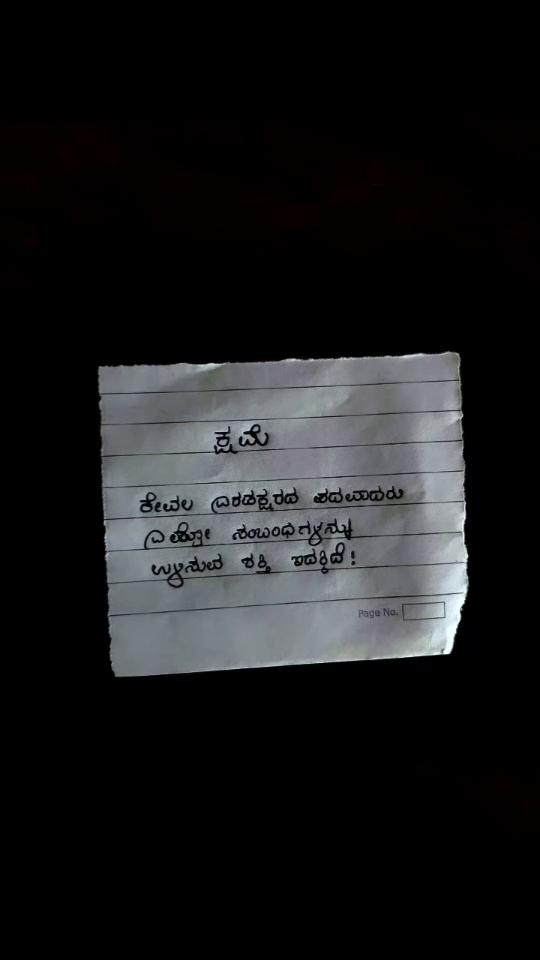 ಕ್ಷಮೆ
ಕೇವಲ ಎರಡಕ್ಷರದ ಪದವಾದರು
ಎಷ್ಟೋ ಸಂಬಂಧಗಳನ್ನು
ಉಳಿಸುವ ಶಕ್ತಿ ಇದಕ್ಕಿದೆ!
Page No.